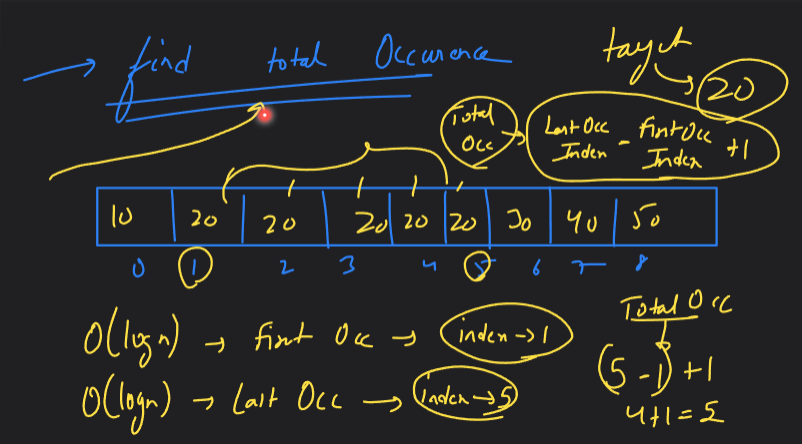 → find total Occurence
target
20
Total Occ → Last Occ Index - first Occ Index + 1
10 20 20 20 20 20 30 40 50
0 1 2 3 4 5 6 7 8
O(logn) → first Occ → index → 1
O(logn) → Last Occ → index → 5
Total Occ
(5 - 1) + 1
4 + 1 = 5